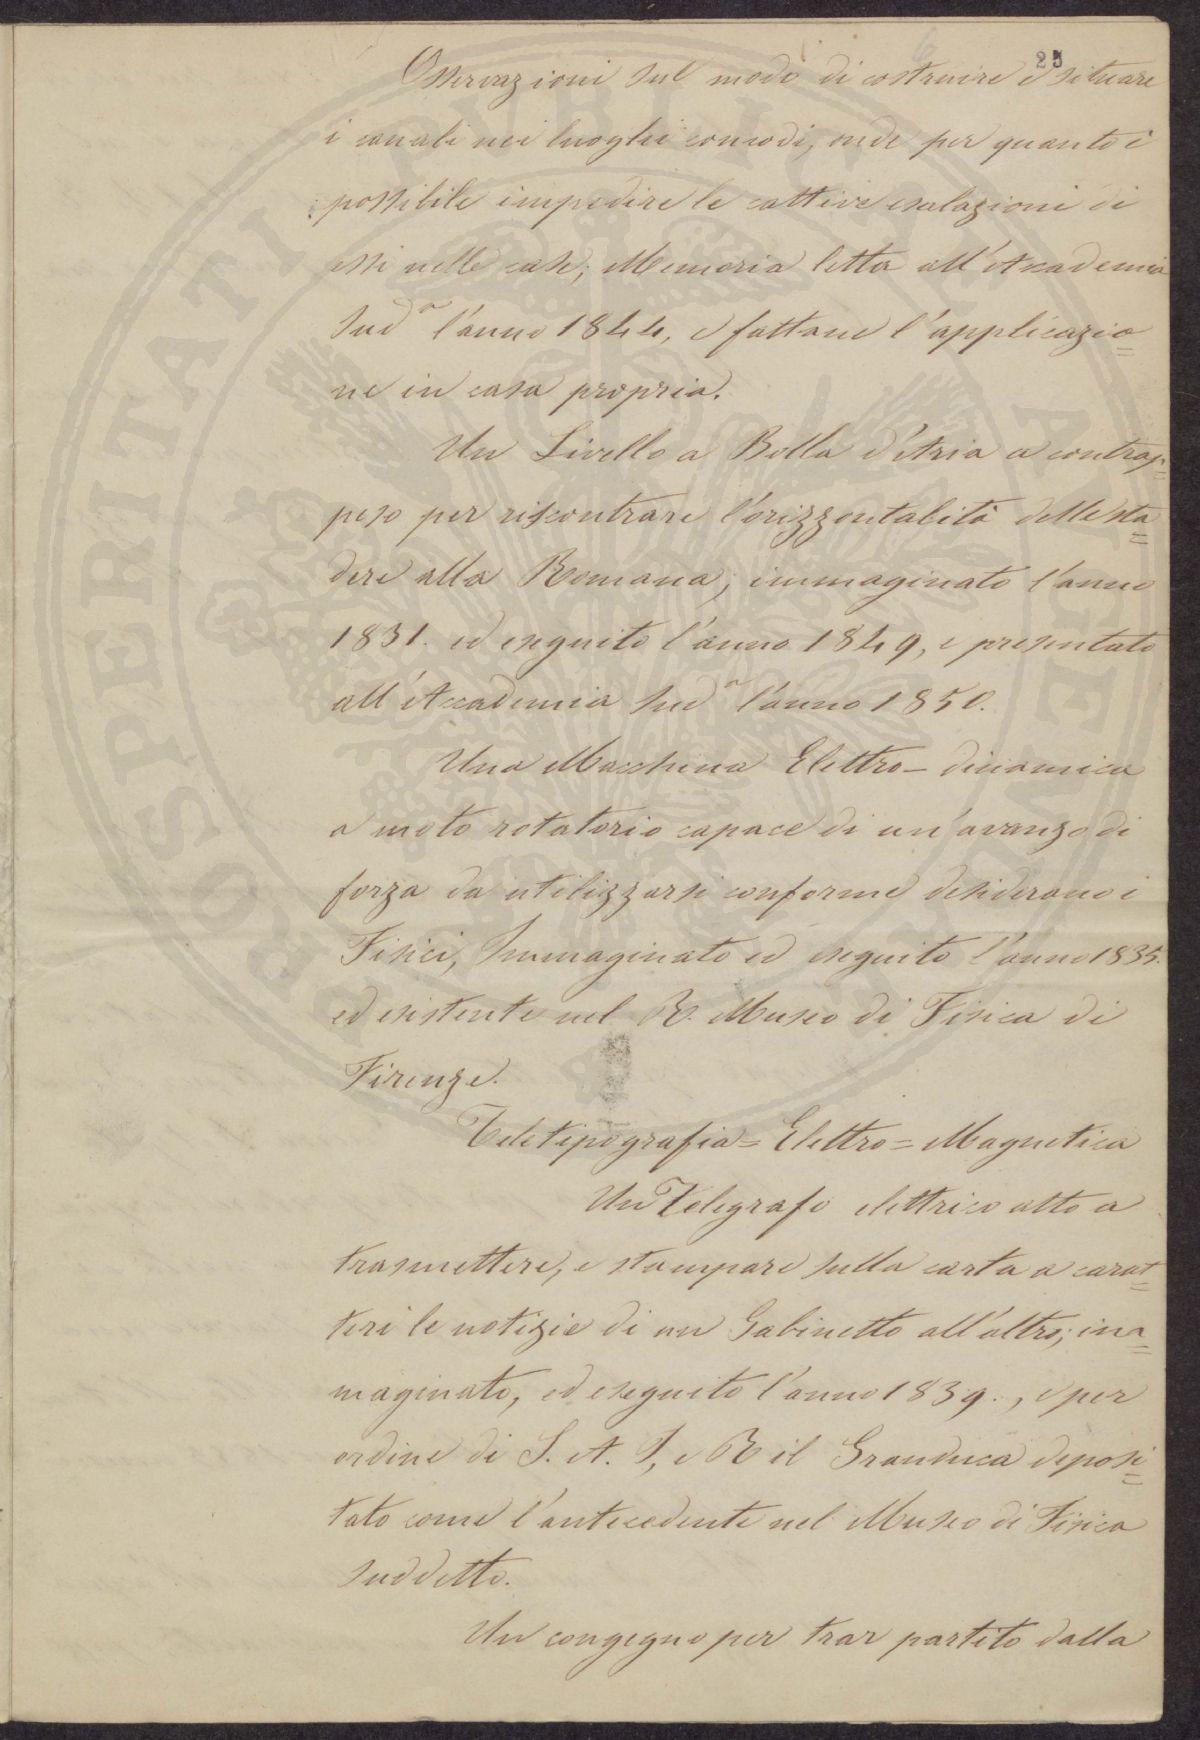 25
Osservazioni sul modo di costruire e situare
i canali nei luoghi comodi, onde per quanto è
possibile impedire le cattive esalazioni di
essi nelle case; Memoria letta all'Accademia
sud.a l'anno 1844, e fattane l'applicazio=
ne in casa propria.
Un Livello a Bolla d'Aria a contrap=
peso per riscontrare l'orizzontalità delle sta=
dere alla Romana; immaginato l'anno
1831. ed eseguito l'anno 1849, e presentato
all'Accademia sud.a l'anno 1850.
Una Macchina Elettro-dinamica
a moto rotatorio capace di un'avanzo di
forza da utilizzarsi conforme desiderano i
Fisici, Immaginato ed eseguito l'anno 1835.
ed esistente nel R. Museo di Fisica di
Firenze.
Teletipografia=Elettro=Magnetica
Un Telegrafo elettrico atto a
trasmettere, e stampare sulla carta a carat=
teri le notizie di un Gabinetto all'altro; im=
maginato, ed eseguito l'anno 1839., e per
ordine di S. A. I, e R il Granduca deposi=
tato come l'antecedente nel Museo di Fisica
suddetto.
Un congegno per trar partito dalla
PROSPERITATI PVBLICAE AVGENDAE